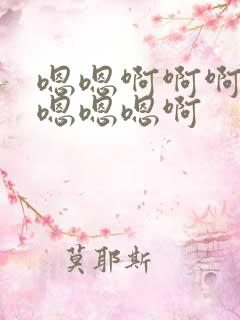 嗯嗯啊啊啊
嗯嗯嗯啊
莫耶斯